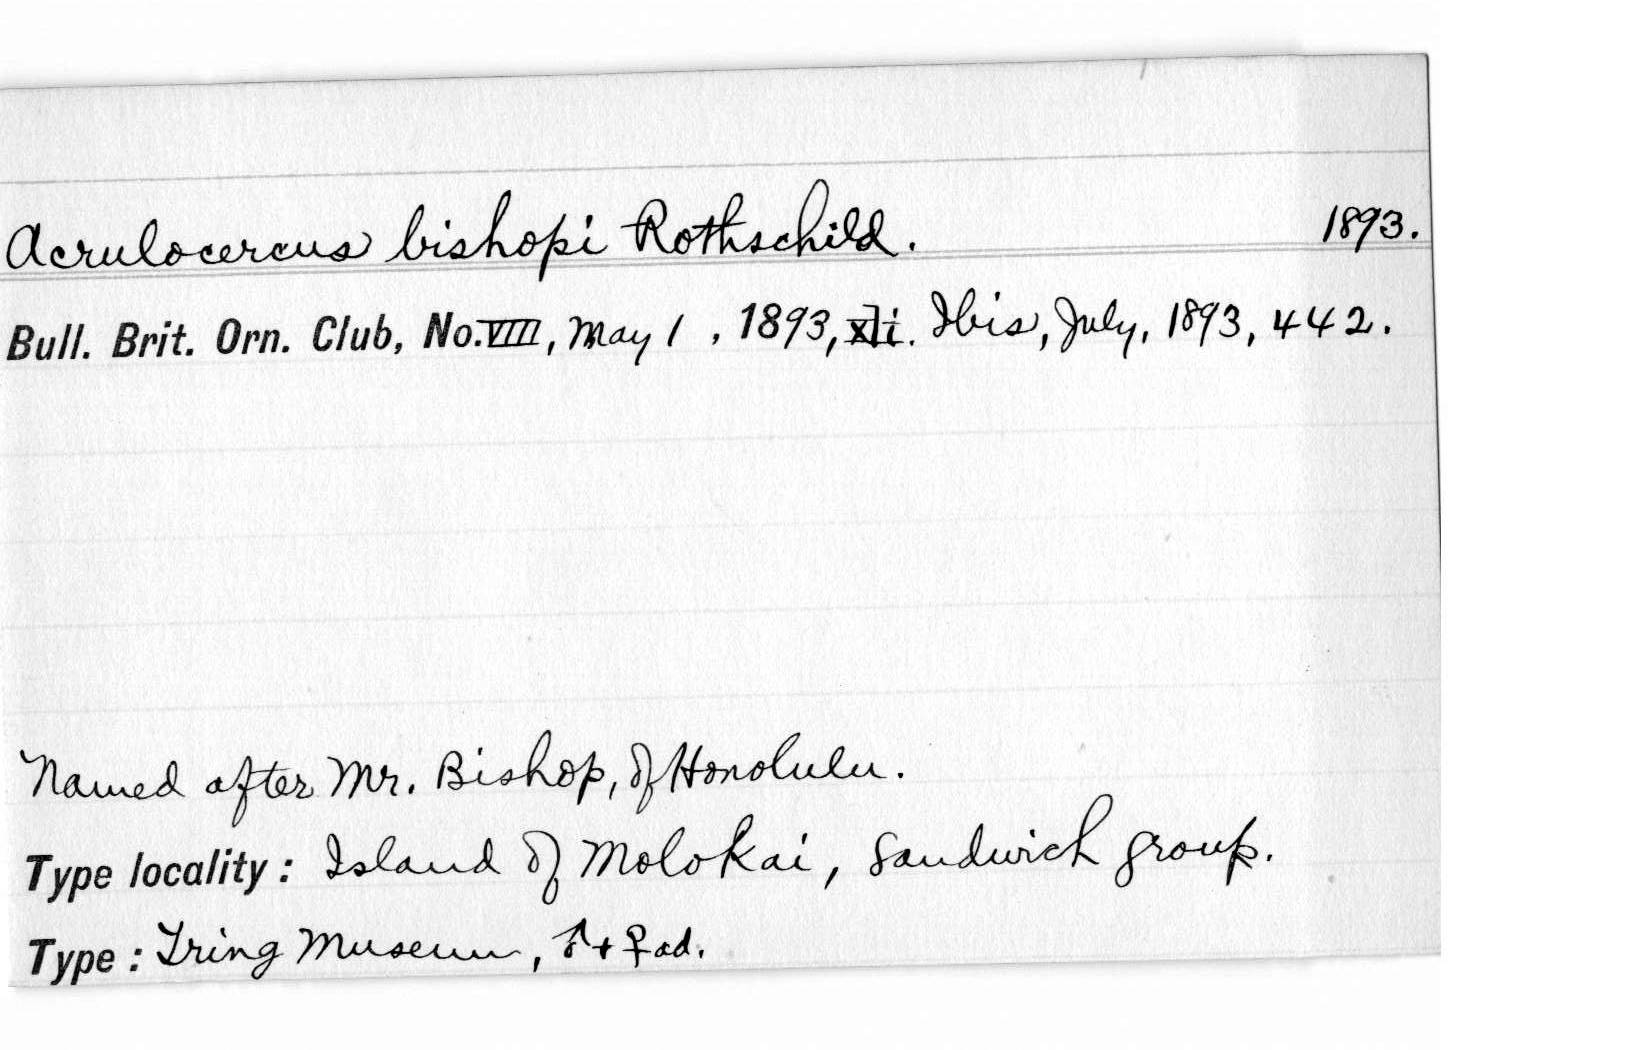 Acrulocercus bishopi Rothschild. 1893.
Bull. Brit. Orn. Club, No. VIII, May 1, 1893, xli. Ibis, July, 1893, 442.
Named after Mr. Bishop, of Honolulu.
Type locality: Island of Molokai, Sandwich group.
Type: Tring Museum, ♂ + ♀ ad.